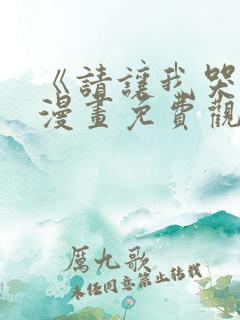 《請讓我哭
漫畫免費觀
厲九歌
未经同意禁止转载